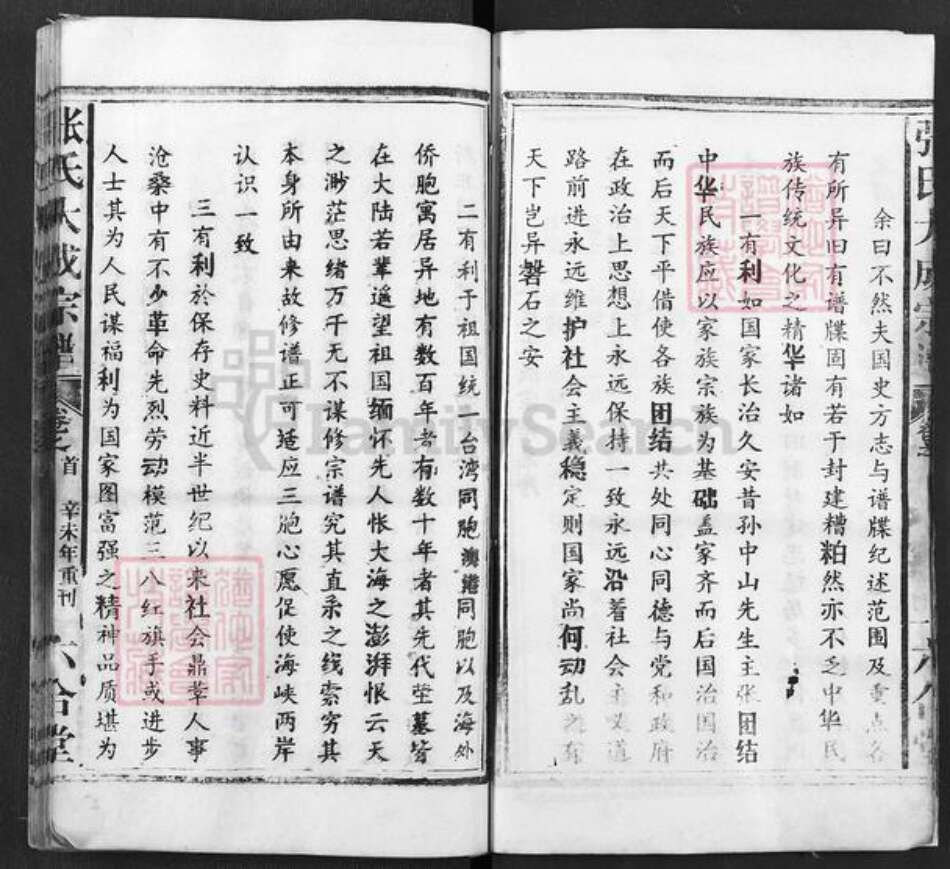 余曰不然夫国史方志与谱牒纪述范围及重点各
有所异曰有谱牒固有若于封建糟粕然亦不乏中华民
族传统文化之精华诸如
一有利如国家长治久安昔孙中山先生主张团结
中华民族应以家族宗族为基础盖家齐而后国治国治
而后天下平借使各族团结共处同心同德与党和政府
在政治上思想上永远保持一致永远沿着社会主义道
路前进永远维护社会主义稳定则国家尚何动乱之有
天下岂异磐石之安
二有利于祖国统一台湾同胞澳港同胞以及海外
侨胞寓居异地有数百年者有数十年者其先代茔墓皆
在大陆若辈遥望祖国缅怀先人怅大海之澎湃恨云天
之渺茫思绪万千无不谋修宗谱究其直系之线索穷其
本身所由来故修谱正可适应三胞心愿促使海峡两岸
认识一致
三有利於保存史料近半世纪以来社会鼎革人事
沧桑中有不少革命先烈劳动模范三八红旗手或进步
人士其为人民谋福利为国家图富强之精神品质堪为
张氏大成宗谱 卷之首 辛未年重刊 六合堂
FamilySearch